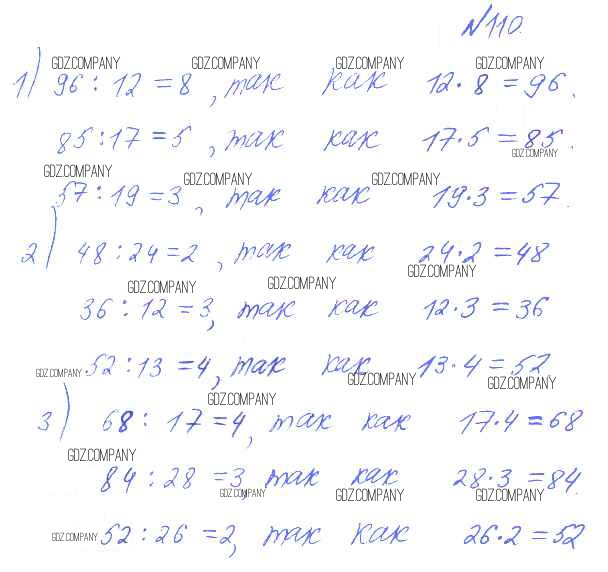 №110.
GDZ.COMPANY GDZ.COMPANY GDZ.COMPANY GDZ.COMPANY
1) 96 : 12 = 8, так как 12 · 8 = 96.
85 : 17 = 5, так как 17 · 5 = 85.
GDZ.COMPANY
GDZ.COMPANY GDZ.COMPANY GDZ.COMPANY
57 : 19 = 3, так как 19 · 3 = 57.
2) 48 : 24 = 2, так как 24 · 2 = 48
GDZ.COMPANY GDZ.COMPANY GDZ.COMPANY
36 : 12 = 3, так как 12 · 3 = 36
GDZ.COMPANY 52 : 13 = 4, так как 13 · 4 = 52
GDZ.COMPANY GDZ.COMPANY GDZ.COMPANY
3) 68 : 17 = 4, так как 17 · 4 = 68
GDZ.COMPANY
84 : 28 = 3, так как 28 · 3 = 84.
GDZ.COMPANY GDZ.COMPANY GDZ.COMPANY
GDZ.COMPANY 52 : 26 = 2, так как 26 · 2 = 52